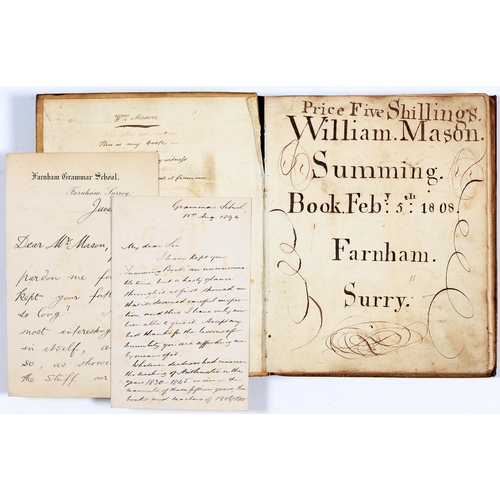 Wm Mason
This is my Book
Price Five Shillings.
William. Mason.
Summing.
Book. Feby. 5th 1808.
Farnham.
Surry.
Farnham Grammar School.
Farnham, Surrey.
June
Dear Mr. Mason,
pardon me fo
kept your
so long?
most interesting
in itself, a
so, as shown
the stuff our
Grammar School
18th Aug 1894
My dear Sir
I have kept your
Summing Book an unconscionable
time but a hasty glance
through it at first showed me
that it deserved careful inspec
tion and this I have only now
been able to give it. Accept my
best thanks for the lesson of
humility you are affording me
by means of it.
Whatever darkness had
the teaching of Arithmetic in the
years 1830-1845
books and masters of